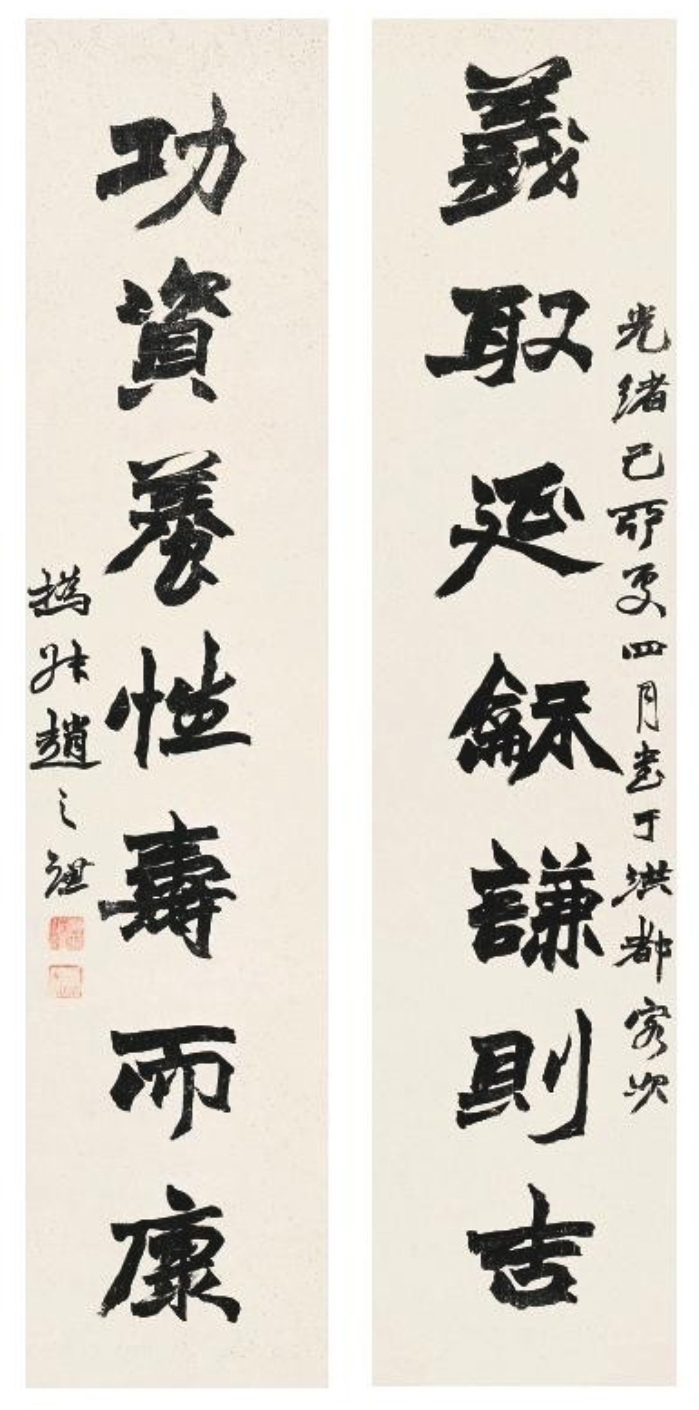 光緒己卯夏四月書于洪都客次
義取延龢謙則吉
功資養性壽而康
撝叔趙之謙